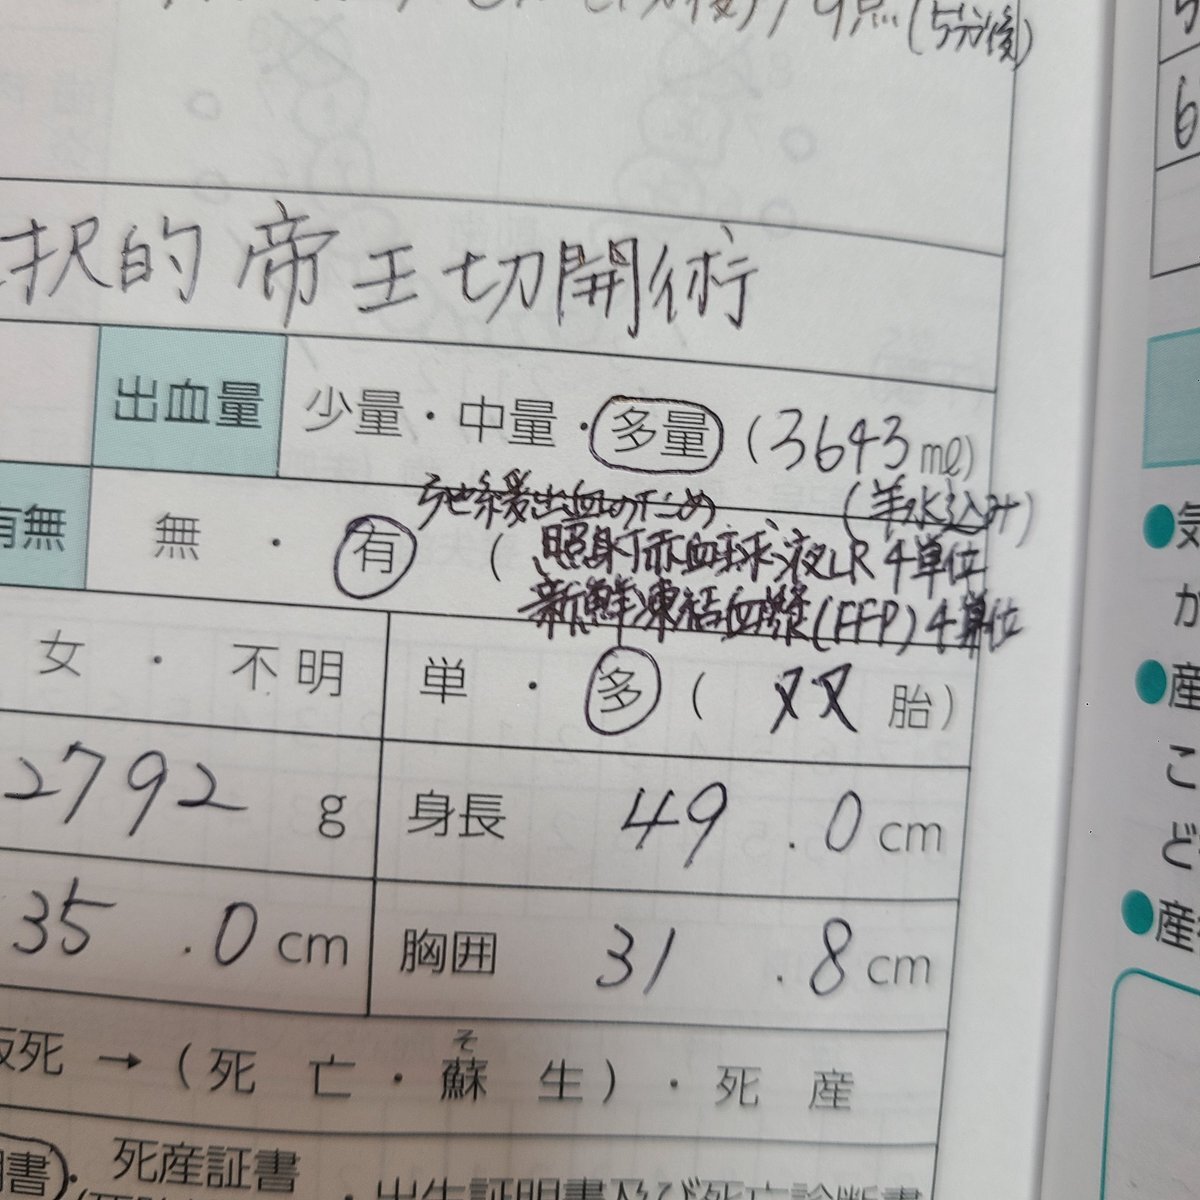 9点(5分後)
択的帝王切開術
出血量 少量・中量・多量 (3643ml)
弛緩出血のため (羊水込み)
有無 無・有 ( 照射赤血球液LR 4単位
新鮮凍結血漿(FFP) 4単位
女・不明 単・多 ( 双胎)
2792 g 身長 49.0 cm
35.0 cm 胸囲 31.8 cm
仮死 → (死亡・蘇生)・死産
そ
書・死産証書
・出生証明書及び死亡診断書
6
●気
か
●産
こ
ど
●産